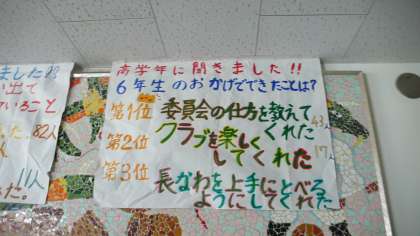 ました?
い出て
いること
82人
11人
た。
高学年に聞きました!!
6年生のおかげでできたことは?
第1位 委員会の仕方を教えて
くれた
第2位 クラブを楽しく
してくれた 17人
第3位 長なわを上手にとべる
ようにしてくれた